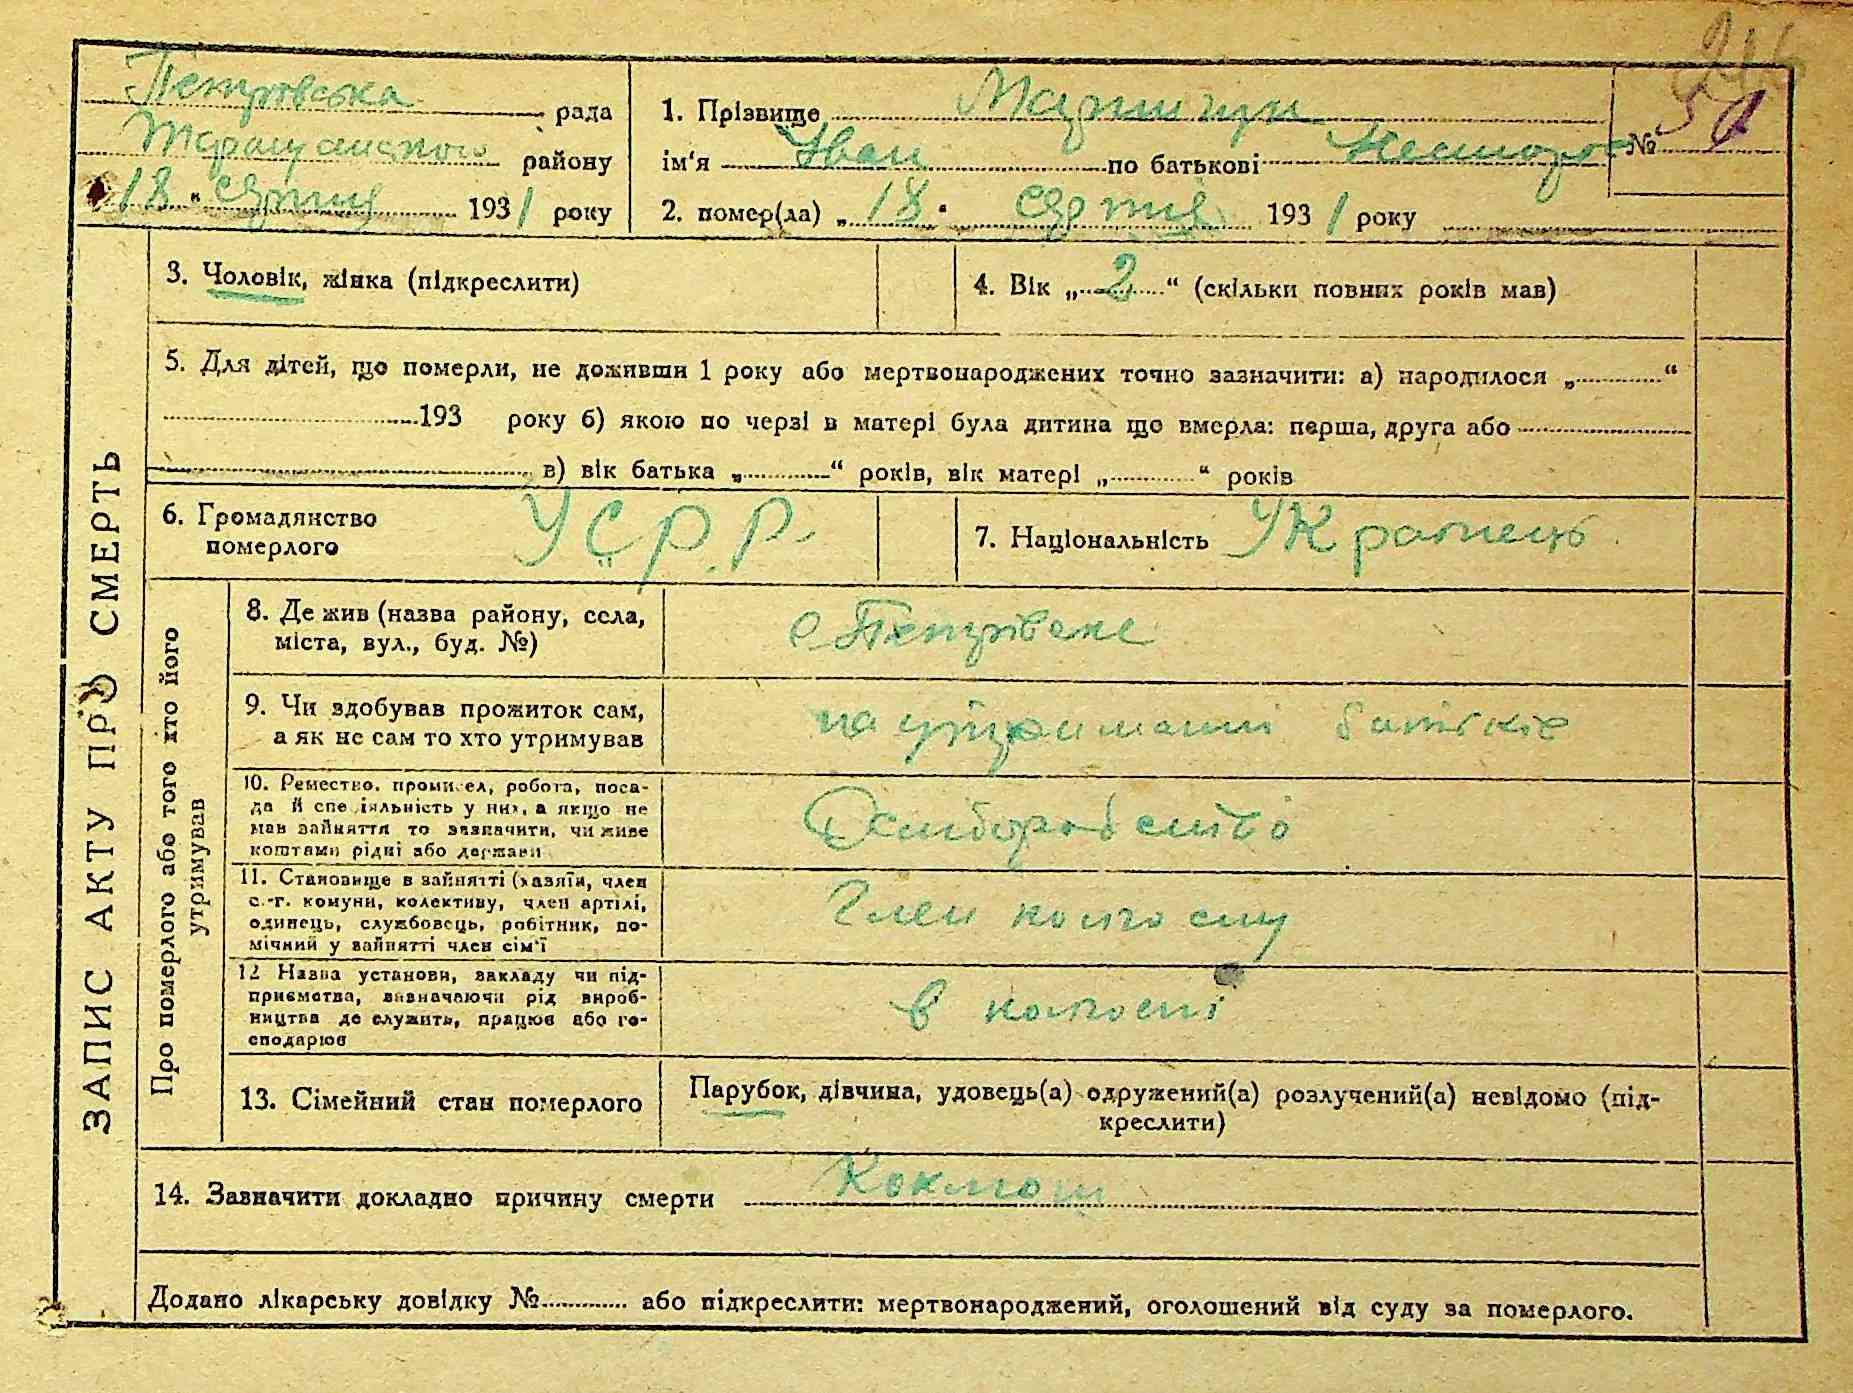 Петрівська рада
Таращанського району
"18" серпня 1931 року
1. Прізвище Мартинчук
ім'я Іван по батькові
№ 51
2. помер(ла) „18" серпня 1931 року
3. Чоловік, жінка (підкреслити)
4. Вік „2" (скільки повних років мав)
5. Для дітей, що померли, не доживши 1 року або мертвонароджених точно зазначити: а) народилося „............"
193 року б) якою по черзі в матері була дитина що вмерла: перша, друга або
в) вік батька „............" років, вік матері „............" років
6. Громадянство
померлого
УСРР.
7. Національність Українець
ЗАПИС АКТУ ПРО СМЕРТЬ
Про померлого або того хто його
утримував
8. Де жив (назва району, села,
міста, вул., буд. №)
с Петрівське
9. Чи здобував прожиток сам,
а як не сам то хто утримував
на утриманні батьків
10. Ремество, промисел, робота, поса-
да й спеціяльність у них, а якщо не
мав зайняття то зазначити, чи живе
коштами рідні або держави
11. Становище в зайнятті (хазяїн, член
с.-г. комуни, колективу, член артілі,
одинець, службовець, робітник, по-
мічний у зайнятті член сім'ї
Член колгоспу
12 Назва установи, закладу чи під-
приємства, визначаючи рід вироб-
ництва де служить, працює або го-
сподарює
в колгоспі
13. Сімейний стан померлого
Парубок, дівчина, удовець(а) одружений(а) розлучений(а) невідомо (під-
креслити)
14. Зазначити докладно причину смерти Коклюш
Додано лікарську довідку №............ або підкреслити: мертвонароджений, оголошений від суду за померлого.